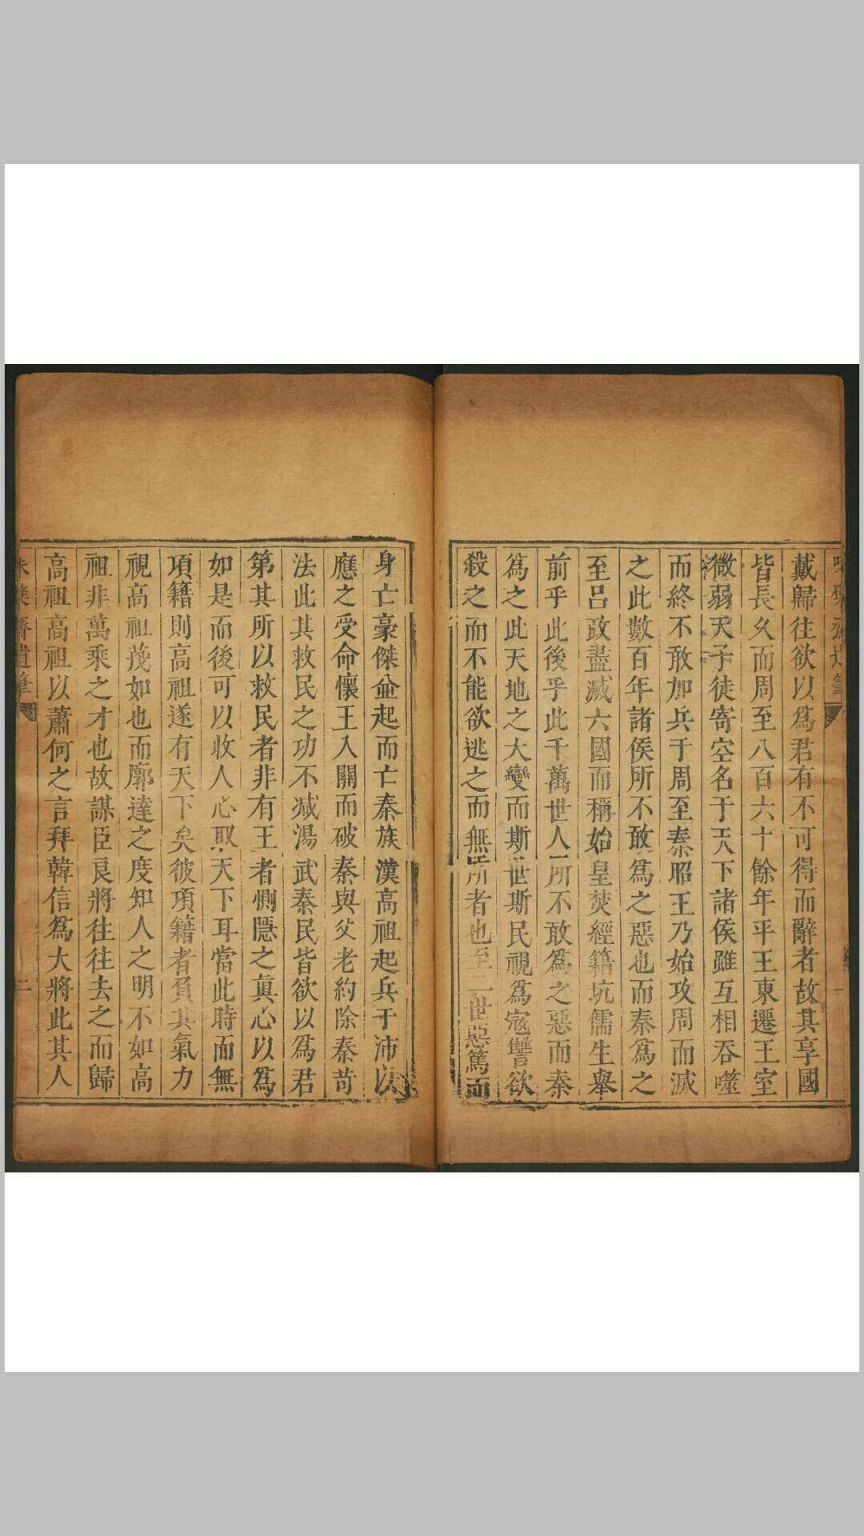 戴歸往欲以爲君有不可得而辭者故其享國
皆長久而周至八百六十餘年平王東遷王室
微弱天子徒寄空名于天下諸侯雖互相吞噬
而終不敢加兵于周至秦昭王乃始攻周而滅
之此數百年諸侯所不敢爲之惡也而秦爲之
至呂政盡滅六國而稱始皇焚經籍坑儒生舉
前乎此後乎此千萬世人所不敢爲之惡而秦
爲之此天地之大變而斯世斯民視爲寇讐欲
殺之而不能欲逃之而無所者也至二世惡篤而
身亡豪傑並起而亡秦族漢高祖起兵于沛以
應之受命懷王入關而破秦與父老約除秦苛
法此其救民之功不减湯武秦民皆欲以爲君
第其所以救民者非有王者惻隱之眞心以爲
如是而後可以收人心取天下耳當此時而無
項籍則高祖遂有天下矣彼項籍者負其氣力
視高祖茂如也而廓達之度知人之明不如高
祖非萬乘之才也故謀臣良將往往去之而歸
高祖高祖以蕭何之言拜韓信爲大將此其人
二